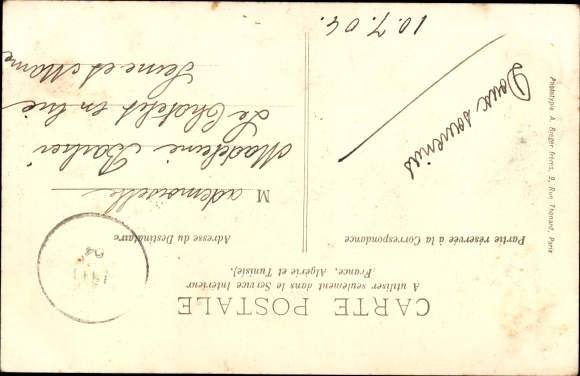 CARTE POSTALE
A utiliser seulement dans le Service Intérieur
(France, Algérie et Tunisie).
Partie réservée à la Correspondance
Adresse du Destinataire
Doux souvenirs
10.7.04.
Mademoiselle
Madeleine
Le Châtelet en Brie
Seine et Marne
04
Phototypie A. Berger frères, 9, Rue Thénard, Paris